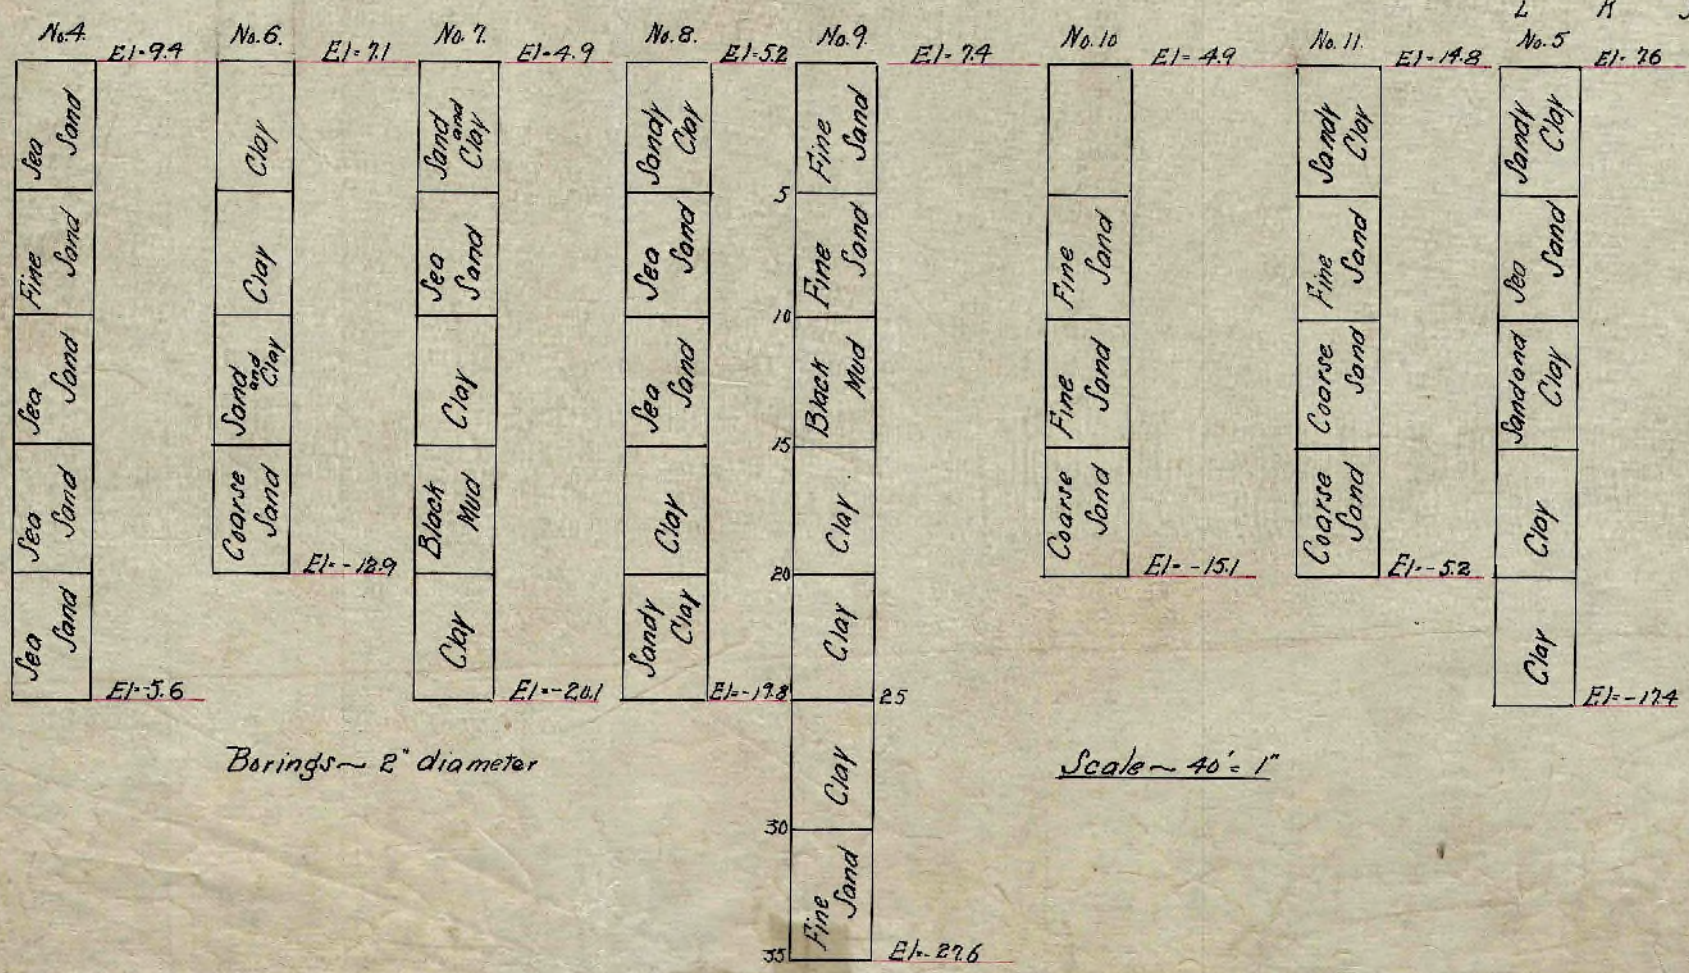 L K
No. 4.
El= 9.4
Sea Sand
Fine Sand
Sea Sand
Sea Sand
Sea Sand
El-5.6
No. 6.
El= 7.1
Clay
Clay
Sand and Clay
Coarse Sand
El= -12.9
No. 7.
El= 4.9
Sand and Clay
Sea Sand
Clay
Black Mud
Clay
El= -20.1
No. 8.
El= 5.2
Sandy Clay
Sea Sand
Sea Sand
Clay
Sandy Clay
El= -19.8
No. 9.
El= 7.4
Fine Sand
5
Fine Sand
10
Black Mud
15
Clay
20
Clay
25
Clay
30
Fine Sand
35
El= -27.6
No. 10
El= 4.9
Fine Sand
Fine Sand
Coarse Sand
El= -15.1
No. 11.
El= 14.8
Sandy Clay
Fine Sand
Coarse Sand
Coarse Sand
El= -5.2
No. 5
El= 7.6
Sandy Clay
Sea Sand
Sand and Clay
Clay
Clay
El= -17.4
Borings ~ 2" diameter
Scale ~ 40' = 1"